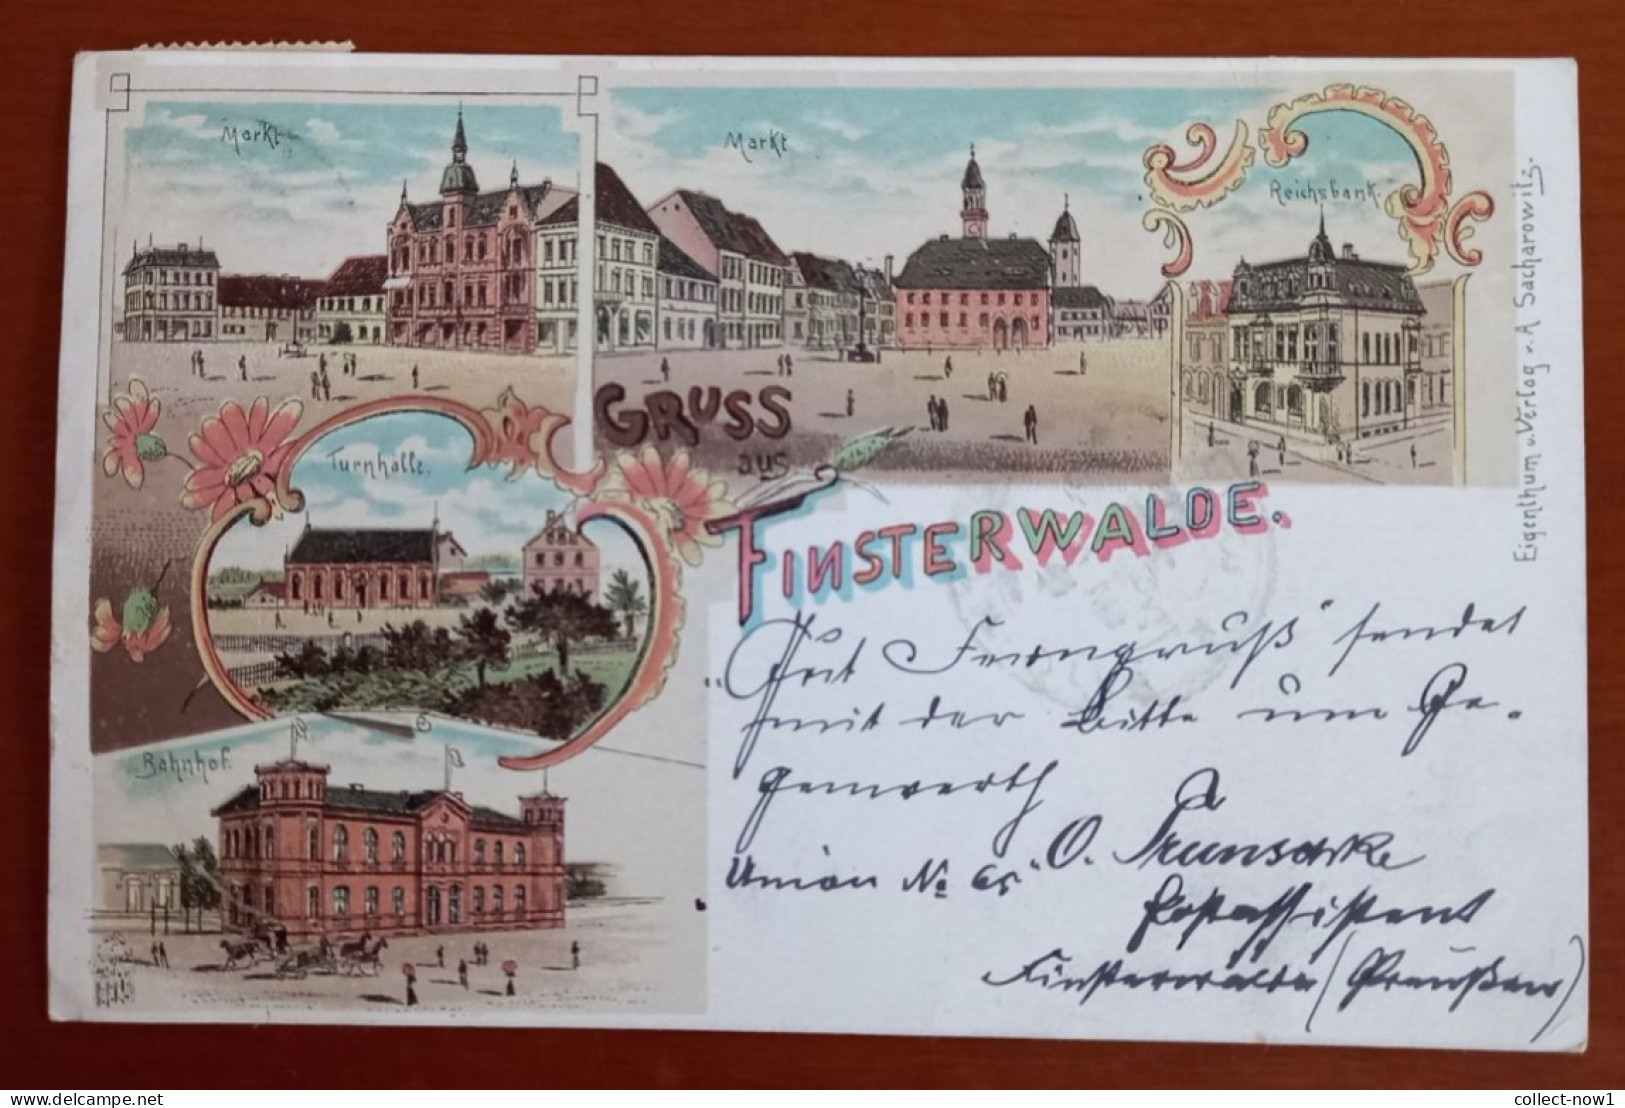 Markt
Markt
Reichsbank.
Turnhalle.
Bahnhof.
GRUSS
aus
FINSTERWALDE.
Eigenthum u. Verlag v. A. Sacharowitz.
„Gut Ferngruß" sendet
mit der Bitte um Ge-
genwerth
Union No 65" O.
Postassistent
Finsterwalde (Preußen)
delcampe.net
collect-now1